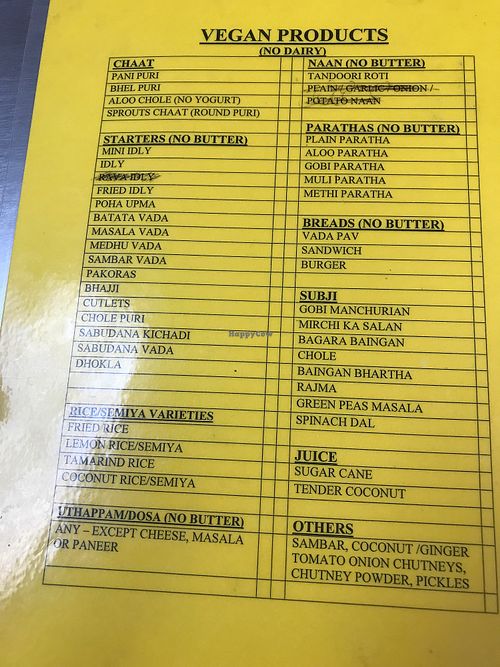 VEGAN PRODUCTS
(NO DAIRY)
CHAAT
PANI PURI
BHEL PURI
ALOO CHOLE (NO YOGURT)
SPROUTS CHAAT (ROUND PURI)
STARTERS (NO BUTTER)
MINI IDLY
IDLY
RAVA IDLY
FRIED IDLY
POHA UPMA
BATATA VADA
MASALA VADA
MEDHU VADA
SAMBAR VADA
PAKORAS
BHAJJI
CUTLETS
CHOLE PURI
SABUDANA KICHADI
SABUDANA VADA
DHOKLA
RICE/SEMIYA VARIETIES
FRIED RICE
LEMON RICE/SEMIYA
TAMARIND RICE
COCONUT RICE/SEMIYA
UTHAPPAM/DOSA (NO BUTTER)
ANY – EXCEPT CHEESE, MASALA
OR PANEER
NAAN (NO BUTTER)
TANDOORI ROTI
PLAIN / GARLIC / ONION /
POTATO NAAN
PARATHAS (NO BUTTER)
PLAIN PARATHA
ALOO PARATHA
GOBI PARATHA
MULI PARATHA
METHI PARATHA
BREADS (NO BUTTER)
VADA PAV
SANDWICH
BURGER
SUBJI
GOBI MANCHURIAN
MIRCHI KA SALAN
BAGARA BAINGAN
CHOLE
BAINGAN BHARTHA
RAJMA
GREEN PEAS MASALA
SPINACH DAL
JUICE
SUGAR CANE
TENDER COCONUT
OTHERS
SAMBAR, COCONUT /GINGER
TOMATO ONION CHUTNEYS,
CHUTNEY POWDER, PICKLES
HappyCow